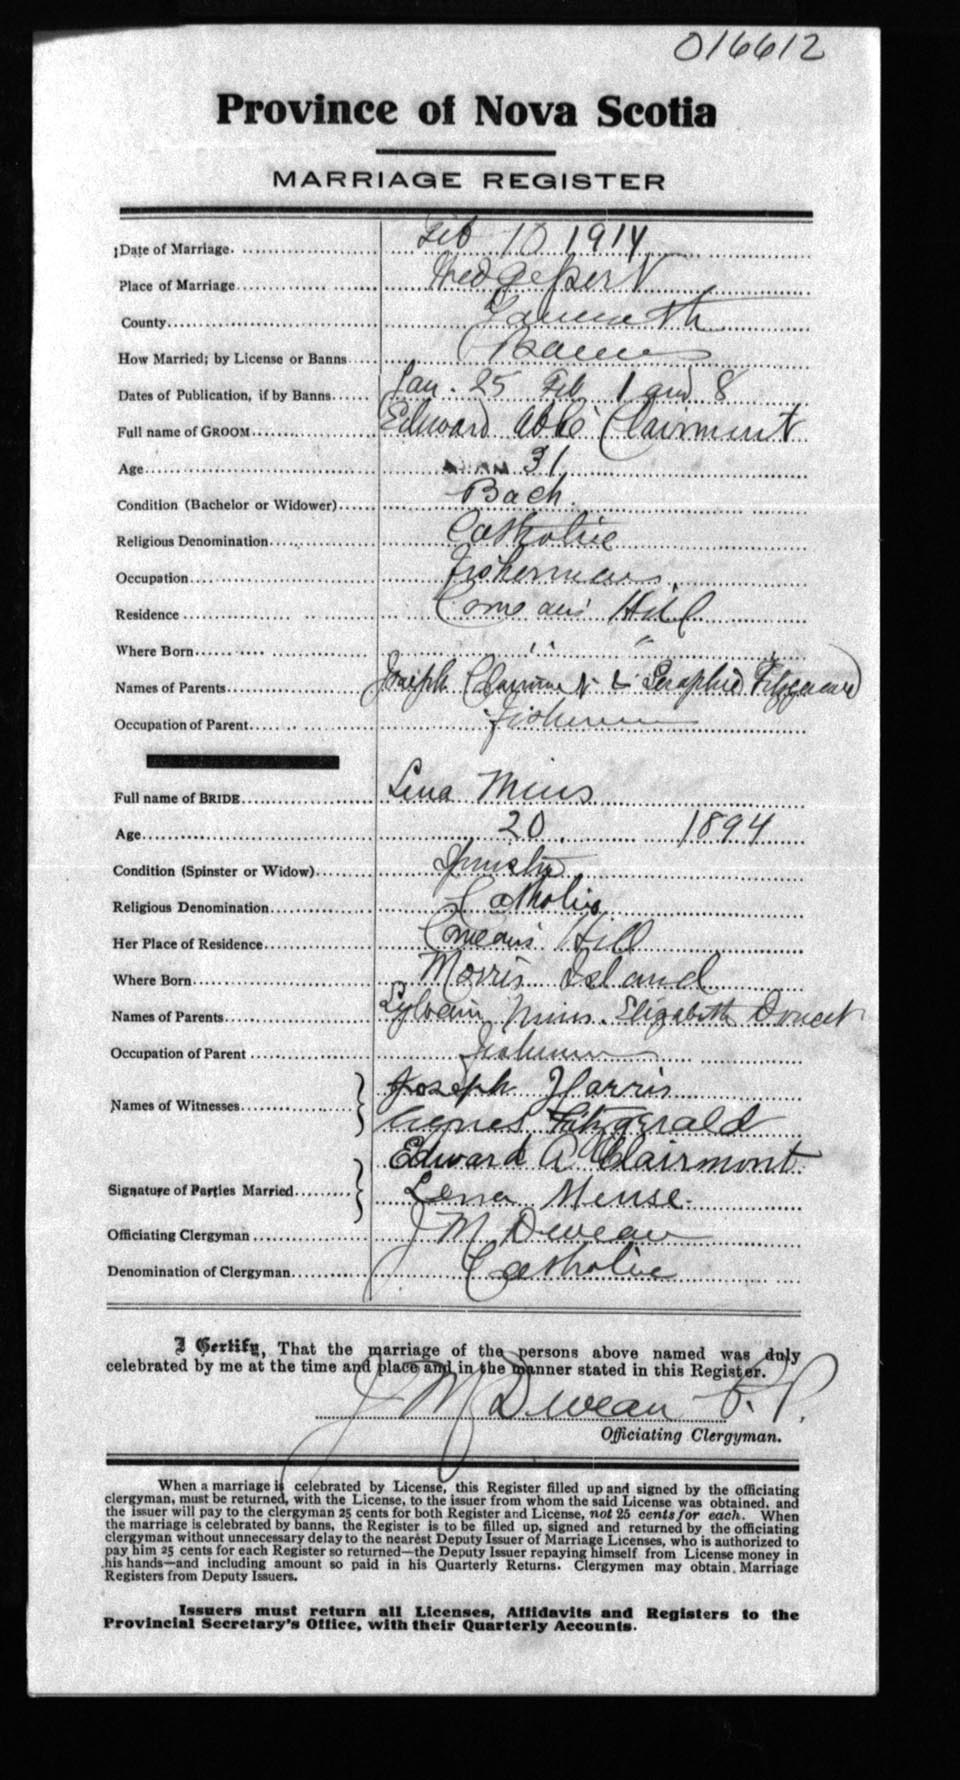 016612
Province of Nova Scotia
MARRIAGE REGISTER
Date of Marriage. Feb 10 1914
Place of Marriage Wedgeport
County Yarmouth
How Married; by License or Banns Banns
Dates of Publication, if by Banns Jan. 25 Feb 1 and 8
Full name of GROOM Edward Abbé Clairmont
Age 31
Condition (Bachelor or Widower) Bach.
Religious Denomination Catholic
Occupation Fisherman
Residence Comeau's Hill
Where Born " "
Names of Parents Joseph Clairmont & Seraphie Fitzgerald
Occupation of Parent Fisherman
Full name of BRIDE Lena Mius
Age 20 1894
Condition (Spinster or Widow) Spinster
Religious Denomination Catholic
Her Place of Residence Comeau's Hill
Where Born Morris Island
Names of Parents Sylvain Mius. Elizabeth Doucet
Occupation of Parent Fisherman
Names of Witnesses Joseph Harris
Agnes Fitzgerald
Edward A Clairmont
Signature of Parties Married Lena Meuse.
Officiating Clergyman J M Deveau
Denomination of Clergyman Catholic
I Certify, That the marriage of the persons above named was duly
celebrated by me at the time and place and in the manner stated in this Register.
J M Deveau P.P.
Officiating Clergyman.
When a marriage is celebrated by License, this Register filled up and signed by the officiating
clergyman, must be returned, with the License, to the issuer from whom the said License was obtained, and
the issuer will pay to the clergyman 25 cents for both Register and License, not 25 cents for each. When
the marriage is celebrated by banns, the Register is to be filled up, signed and returned by the officiating
clergyman without unnecessary delay to the nearest Deputy Issuer of Marriage Licenses, who is authorized to
pay him 25 cents for each Register so returned—the Deputy Issuer repaying himself from License money in
his hands—and including amount so paid in his Quarterly Returns. Clergymen may obtain Marriage
Registers from Deputy Issuers.
Issuers must return all Licenses, Affidavits and Registers to the
Provincial Secretary's Office, with their Quarterly Accounts.